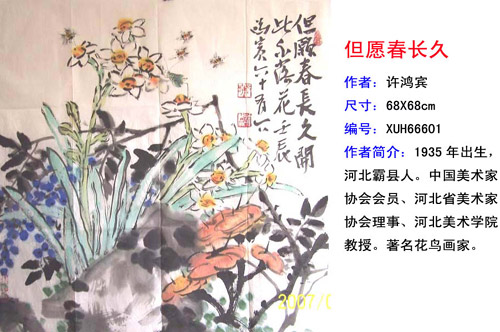 但願春長久開
此不落花
六十有
2007/0
但愿春长久
作者：许鸿宾
尺寸：68X68cm
编号：XUH66601
作者简介：1935年出生，
河北霸县人。中国美术家
协会会员、河北省美术家
协会理事、河北美术学院
教授。著名花鸟画家。